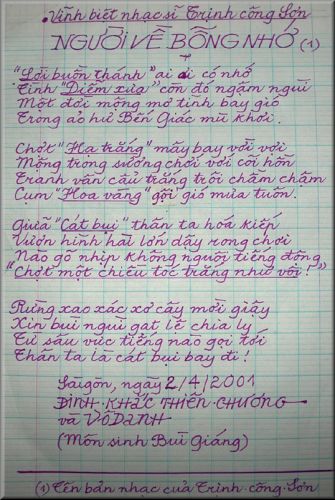 . Vĩnh biệt nhạc sĩ Trịnh Công Sơn
NGƯỜI VỀ BỖNG NHỚ (1)
"Lời buồn thánh" ai đi có nhớ
Tình "Diễm xưa" còn đó ngậm ngùi
Một đời mộng mơ tình bay gió
Trong ảo hư Bến Giác mù khơi.
Chợt "Hạ trắng" mây bay vời vời
Mộng trong sương chơi với côi hồn
Tranh vân cẩu trắng trôi chầm chậm
Cụm "Hoa vàng" gợi gió mưa tuôn.
Giữa "Cát bụi" thân ta hoá kiếp
Vươn hình hài lớn dậy rong chơi
Nào gõ nhịp không người tiếng động
"Chợt một chiều tóc trắng như vôi!"
Rừng xao xác xơ cây mời giấy
Xin bùi ngùi gạt lệ chia ly
Từ sâu vực tiếng nào gọi tới
Thân ta là cát bụi bay đi!
Saigòn, ngày 2/4/2001
ĐÌNH · KHẮC THIÊN · CHƯƠNG
và VÔ DANH
(Môn sinh Bùi Giáng)
(1) Tên bản nhạc của Trịnh · công · Sơn